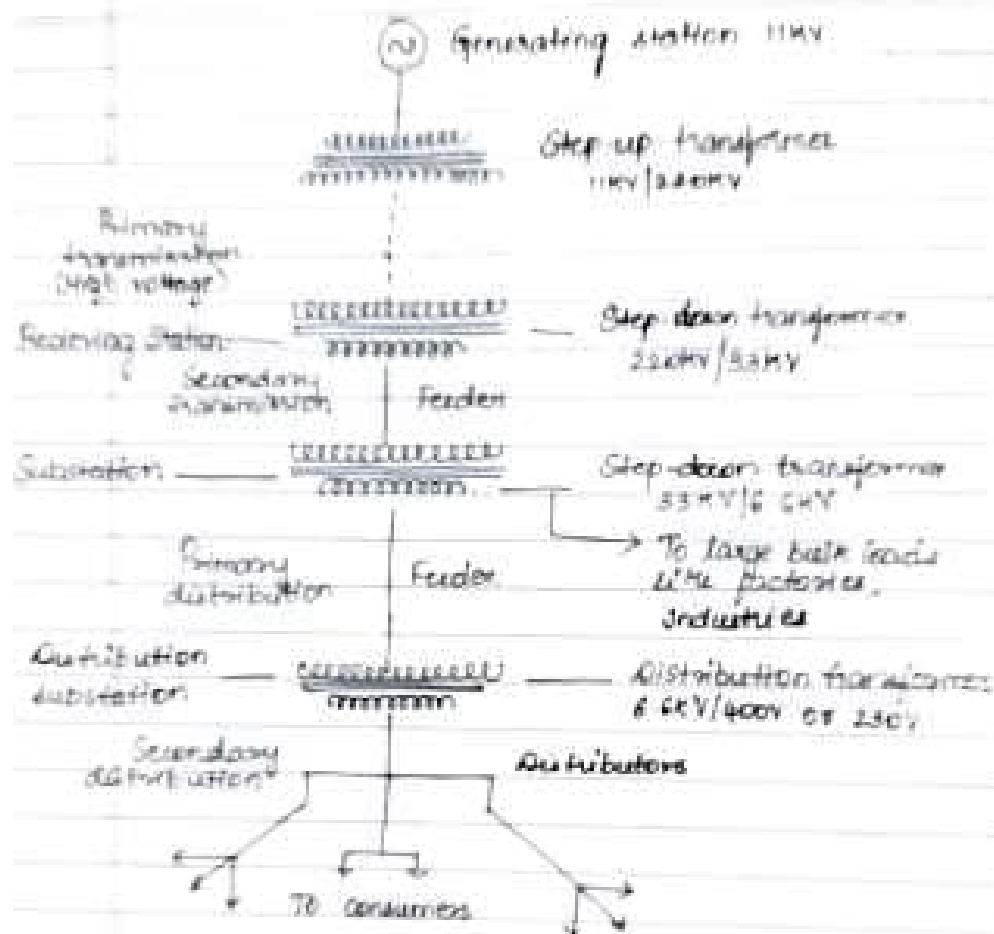 Generating station 11KV
Step up transformer
11KV/220KV
Primary
transmission
(High voltage)
Receiving Station
Step down transformer
220KV/33KV
Secondary
transmission
Feeder
Substation
Step-down transformer
33KV/6.6KV
To large bulk loads
like factories,
industries
Primary
distribution
Feeder
Distribution
substation
Distribution transformer
6.6KV/400V or 230V
Secondary
distribution
Distributors
To consumers